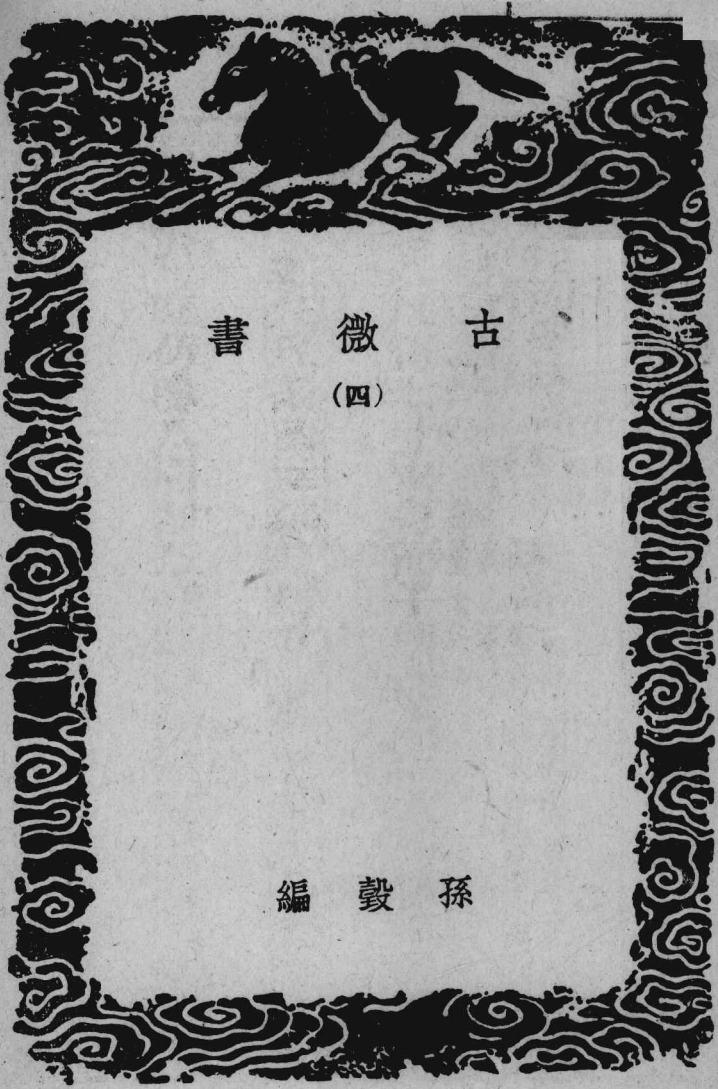 古微書
(四)
孫瑴編